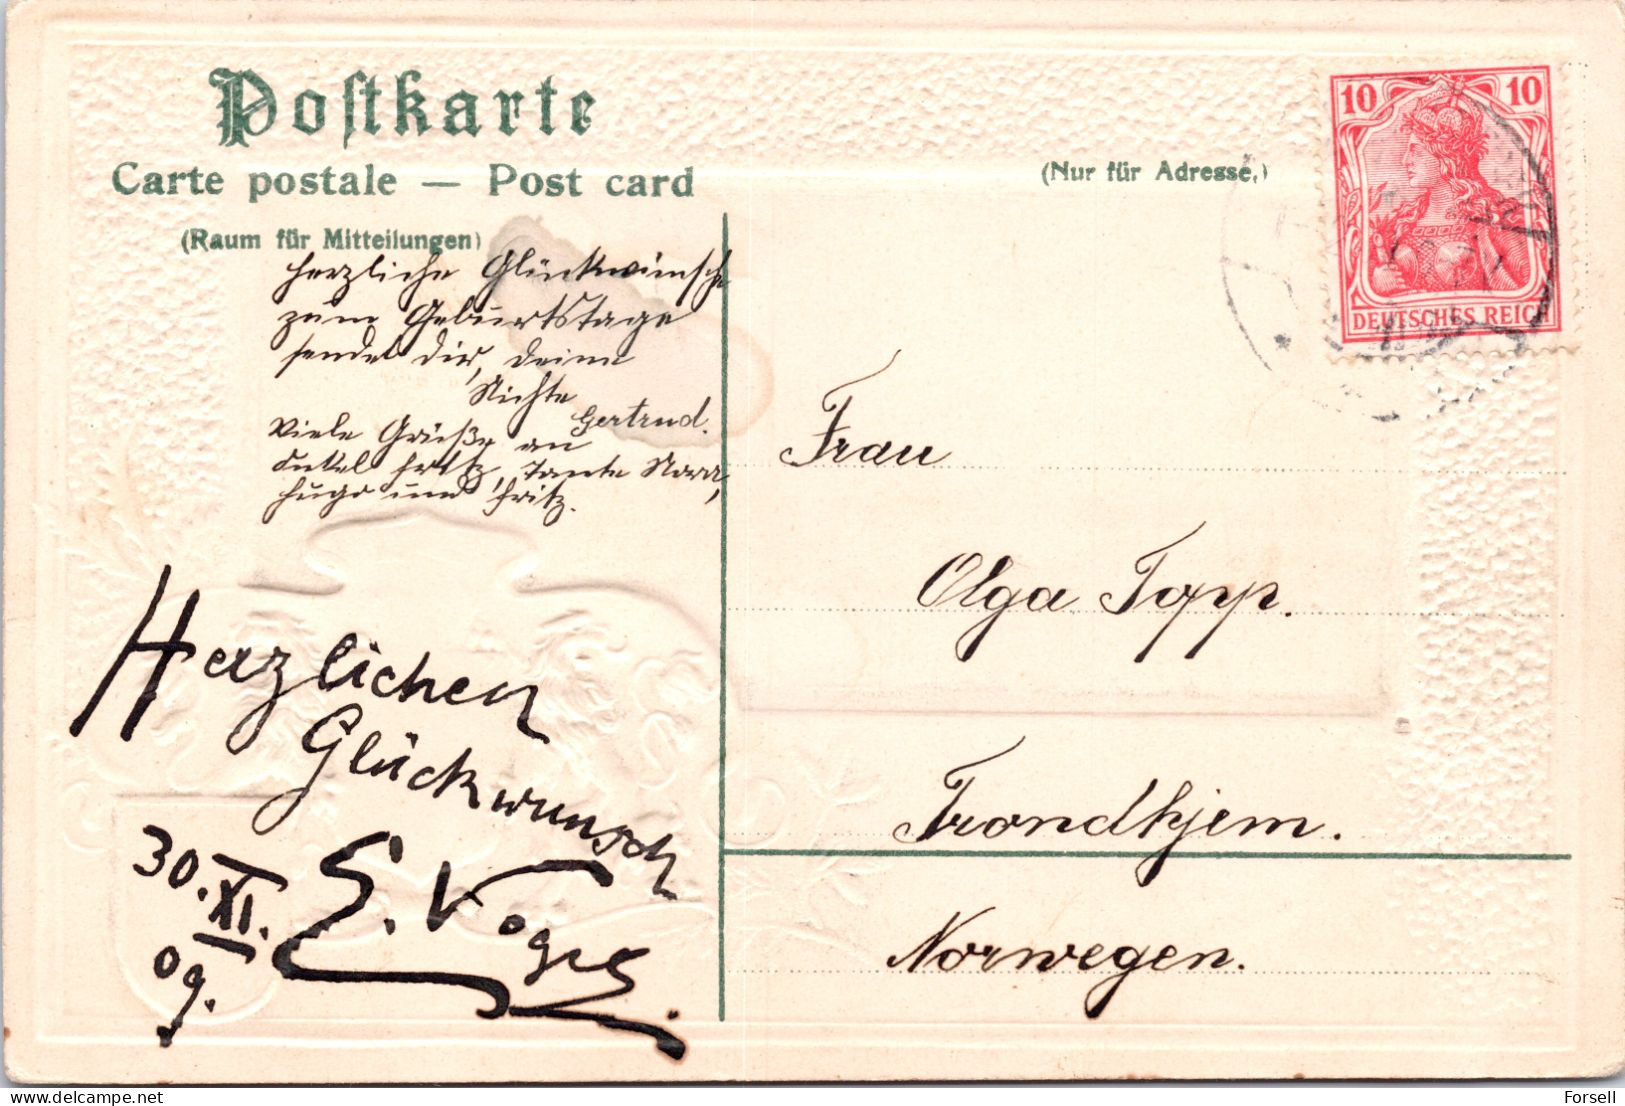 Postkarte
Carte postale — Post card
(Nur für Adresse.)
(Raum für Mitteilungen)
10 10
DEUTSCHES REICH
Herzliche Glückwünsche
zum Geburtstage
sendet dir, deine
Nichte
Gertrud.
Viele Grüße an
Onkel Fritz, Tante Nora,
Hugo und Fritz.
Herzlichen
Glückwunsch
30. XI. 09.
E. Vogel.
Frau
Olga Topp.
Trondhjem.
Norwegen.
Forsell